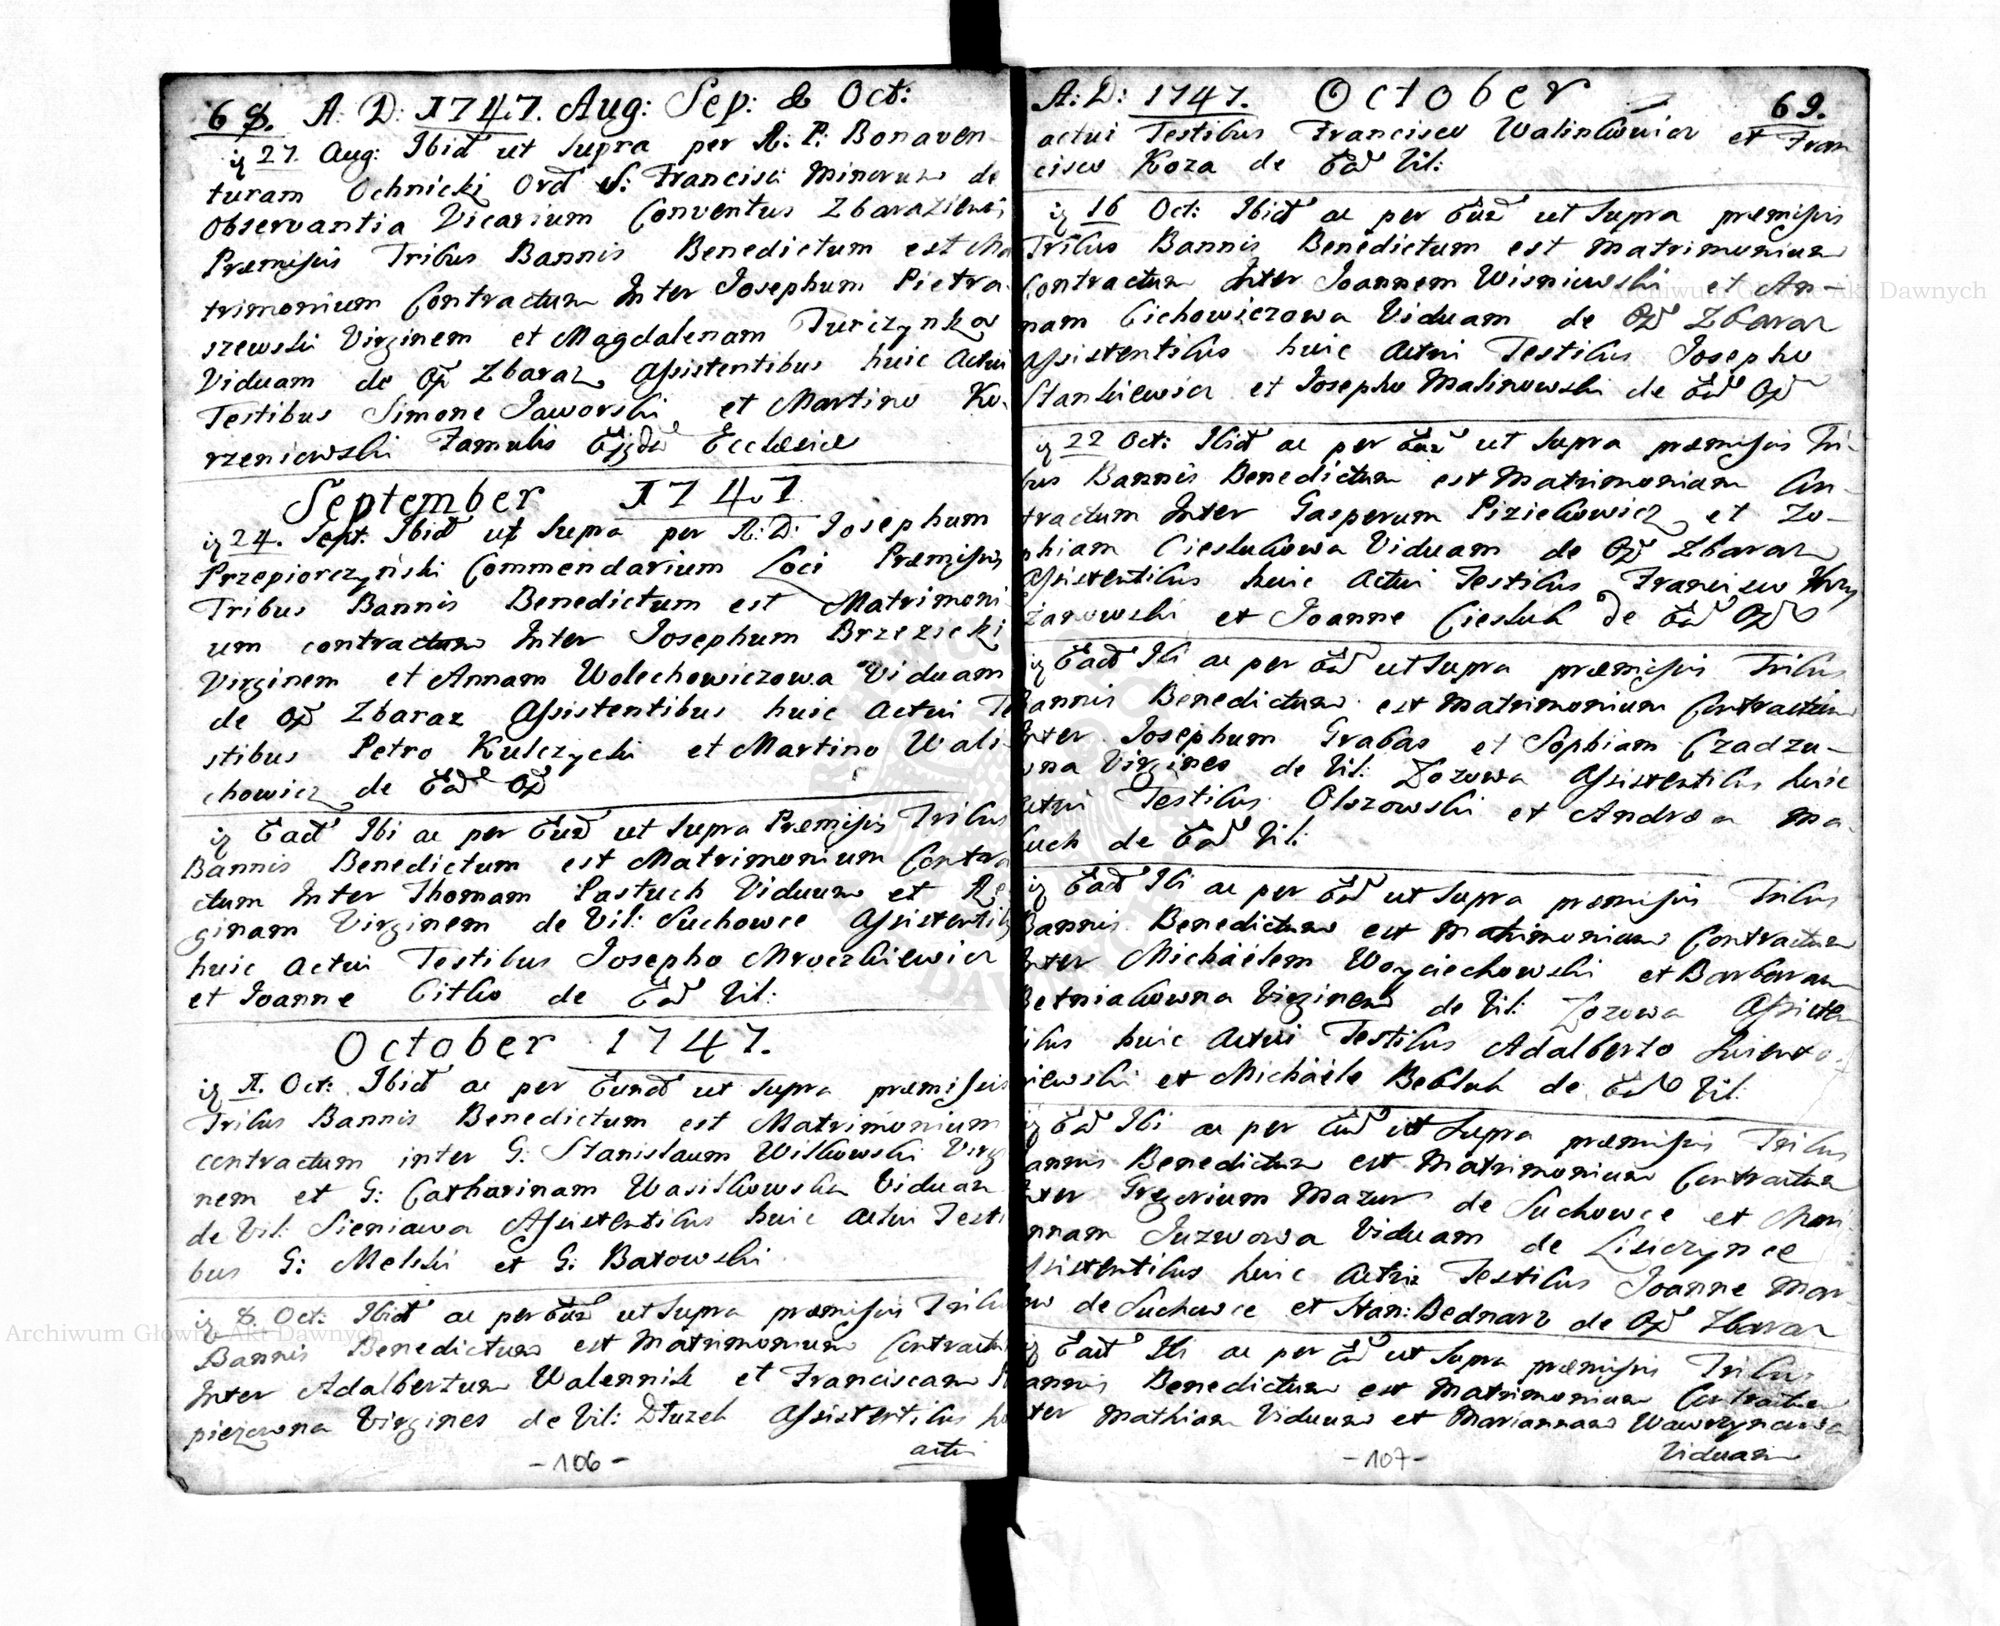 68. A: D: 1747. Aug: Sep: & Oct:
27. Aug: Ibid ut supra per R: P: Bonaven
turam Ochnicki Ord S: Francisci Minorum de
Observantia Vicarium Conventus Zbaraziensis
Præmissis Tribus Bannis Benedictum est Ma
trimonium Contractum Inter Josephum Pietra
szewski Virginem et Magdalenam Turczynkow
Viduam de Op Zbaraz Assistentibus huic Actui
Testibus Simone Jaworski et Martino Ko
rzeniowski Famulis Ejgdē Ecclesiæ
September 1747
24. Sept. Ibid ut supra per R: D: Josephum
Przepiorczyński Commendarium Loci Præmissis
Tribus Bannis Benedictum est Matrimoni
um contractum Inter Josephum Brzezicki
Virginem et Annam Wolechowiczowa Viduam
de Op Zbaraz Assistentibus huic Actui Te
stibus Petro Kulczycki et Martino Wali
chowicz de Ead Op
Ead Ibi ac per Eund ut supra Præmissis Tribus
Bannis Benedictum est Matrimonium Contra
ctum Inter Thomam Pastuch Viduum et Re
ginam Virginem de Vil: Suchowce Assistentib
huic Actui Testibus Josepho Mroczkiewicz
et Joanne Citko de Ead Vil:
October 1747.
1. Oct: Ibid ac per Eund ut supra præmissis
Tribus Bannis Benedictum est Matrimonium
contractum inter G: Stanislaum Witkowski Virgi
nem et G: Catharinam Wasilkowska Viduam
de Vil: Sieniawa Assistentibus huic actui Testi
bus G: Melski et G: Batowski
8. Oct: Ibid ac per Eund ut supra præmissis Tribu
Bannis Benedictum est Matrimonium Contractu
Inter Adalbertum Walennik et Franciscam
piezowna Virgines de Vil: Dłuzek Assistentibus hu
actui
- 106 -
A: D: 1747. October 69.
actui Testibus Francisco Walinkowicz et Fran
cisco Koza de Ead Vil:
16 Oct: Ibid ac per Eund ut supra præmissis
Tribus Bannis Benedictum est Matrimonium
Contractum Inter Joannem Wisniewski et An-
nam Cichowiczowa Viduam de Op Zbaraz
Assistentibus huic Actui Testibus Josepho
Stankiewicz et Josepho Malinowski de Ead Op
22 Oct: Ibid ac per Eund ut supra præmissis Tri-
bus Bannis Benedictum est Matrimonium Con-
tractum Inter Gasperum Piziekowicz et Zo-
phiam Cieslukowa Viduam de Op Zbaraz
Assistentibus huic Actui Testibus Francisco
zanowski et Joanne Ciesluk de Ead Op
Ead Ibi ac per Eund ut supra præmissis Tribus
annis Benedictum est Matrimonium Contractum
nter Josephum Grabas et Sophiam Czadzu-
wna Virgines de Vil: Zozowa Assistentibus huic
actui Testibus Olszowski et Andrea Ma-
luch de Ead Vil:
Ead Ibi ac per Eund ut supra præmissis Tribus
Bannis Benedictum est Matrimonium Contractum
nter Michaëlem Woyciechowski et Barbaram
Betniakowna Virginem de Vil: Zozowa Assisten
ibus huic Actui Testibus Adalberto
niewski et Michaële Bebluk de Ead Vil:
Ead Ibi ac per Eund ut supra præmissis Tribus
annis Benedictum est Matrimonium Contractum
nter Gregorium Mazur de Suchowce et Mari-
nnam Juzwowa Viduam de Lisiczynce
ssistentibus huic Actui Testibus Joanne Mar-
de Suchowce et Stan: Bednarz de Op Zbaraz
Ead Ibi ac per Eund ut supra præmissis Tribus
annis Benedictum est Matrimonium Contractum
ter Mathiam Viduum et Mariannam Wawrzynowa
Viduam
- 107 -
Archiwum Główne Akt Dawnych
Archiwum Główne Akt Dawnych